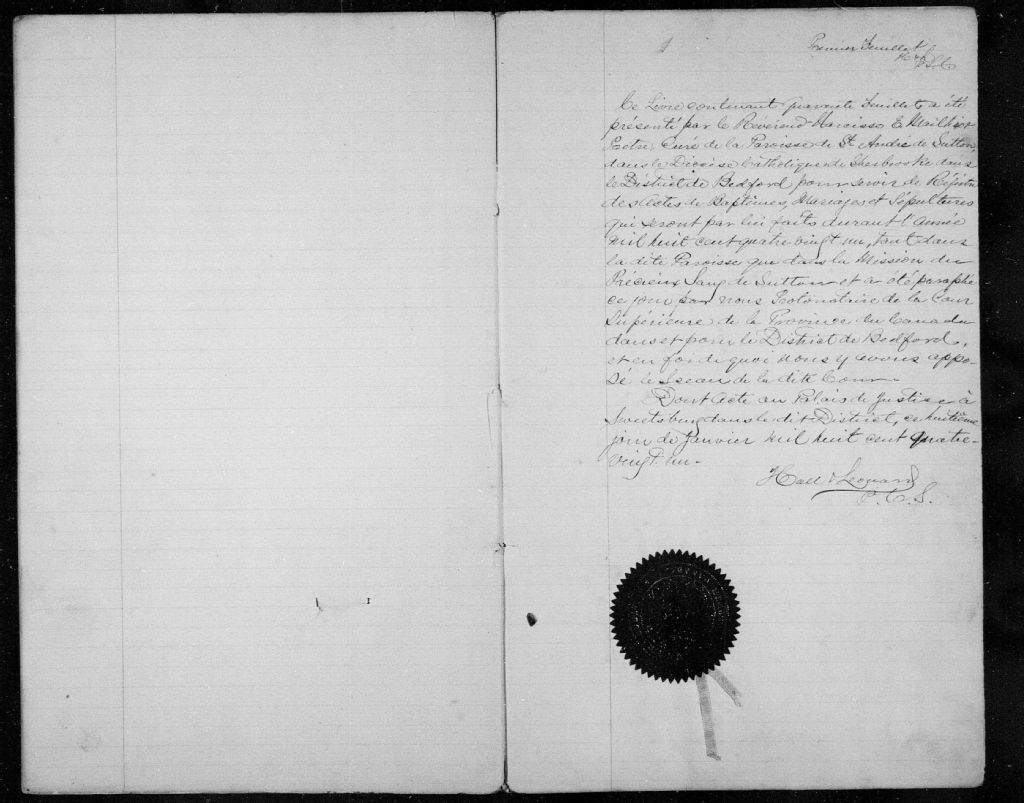 1
Premier Feuillet
H & L
P.S.C.
Ce Livre contenant quarante Feuillets a été
présenté par le Révérend Narcisse E. Mailhiot
Pretre, Curé de la Paroisse de St André de Sutton,
dans le Diocèse Catholique de Sherbrooke dans
le District de Bedford pour servir de Régistre
des Actes de Baptêmes, Mariages et Sépultures
qui seront par lui faits durant l'année
mil huit cent quatre vingt un, tant dans
la dite Paroisse que dans la Mission du
Précieux Sang de Sutton et a été paraphé
ce jour par nous Protonotaire de la Cour
Supérieure de la Province du Canada
dans et pour le District de Bedford,
et en foi de quoi nous y avons appo-
sé le Sceau de la dite Cour.
Dont Acte au Palais de Justice à
Sweetsburg dans le dit District, ce huitième
jour de Janvier mil huit cent quatre-
vingt un.
Hall & Leonard
P. C. S.